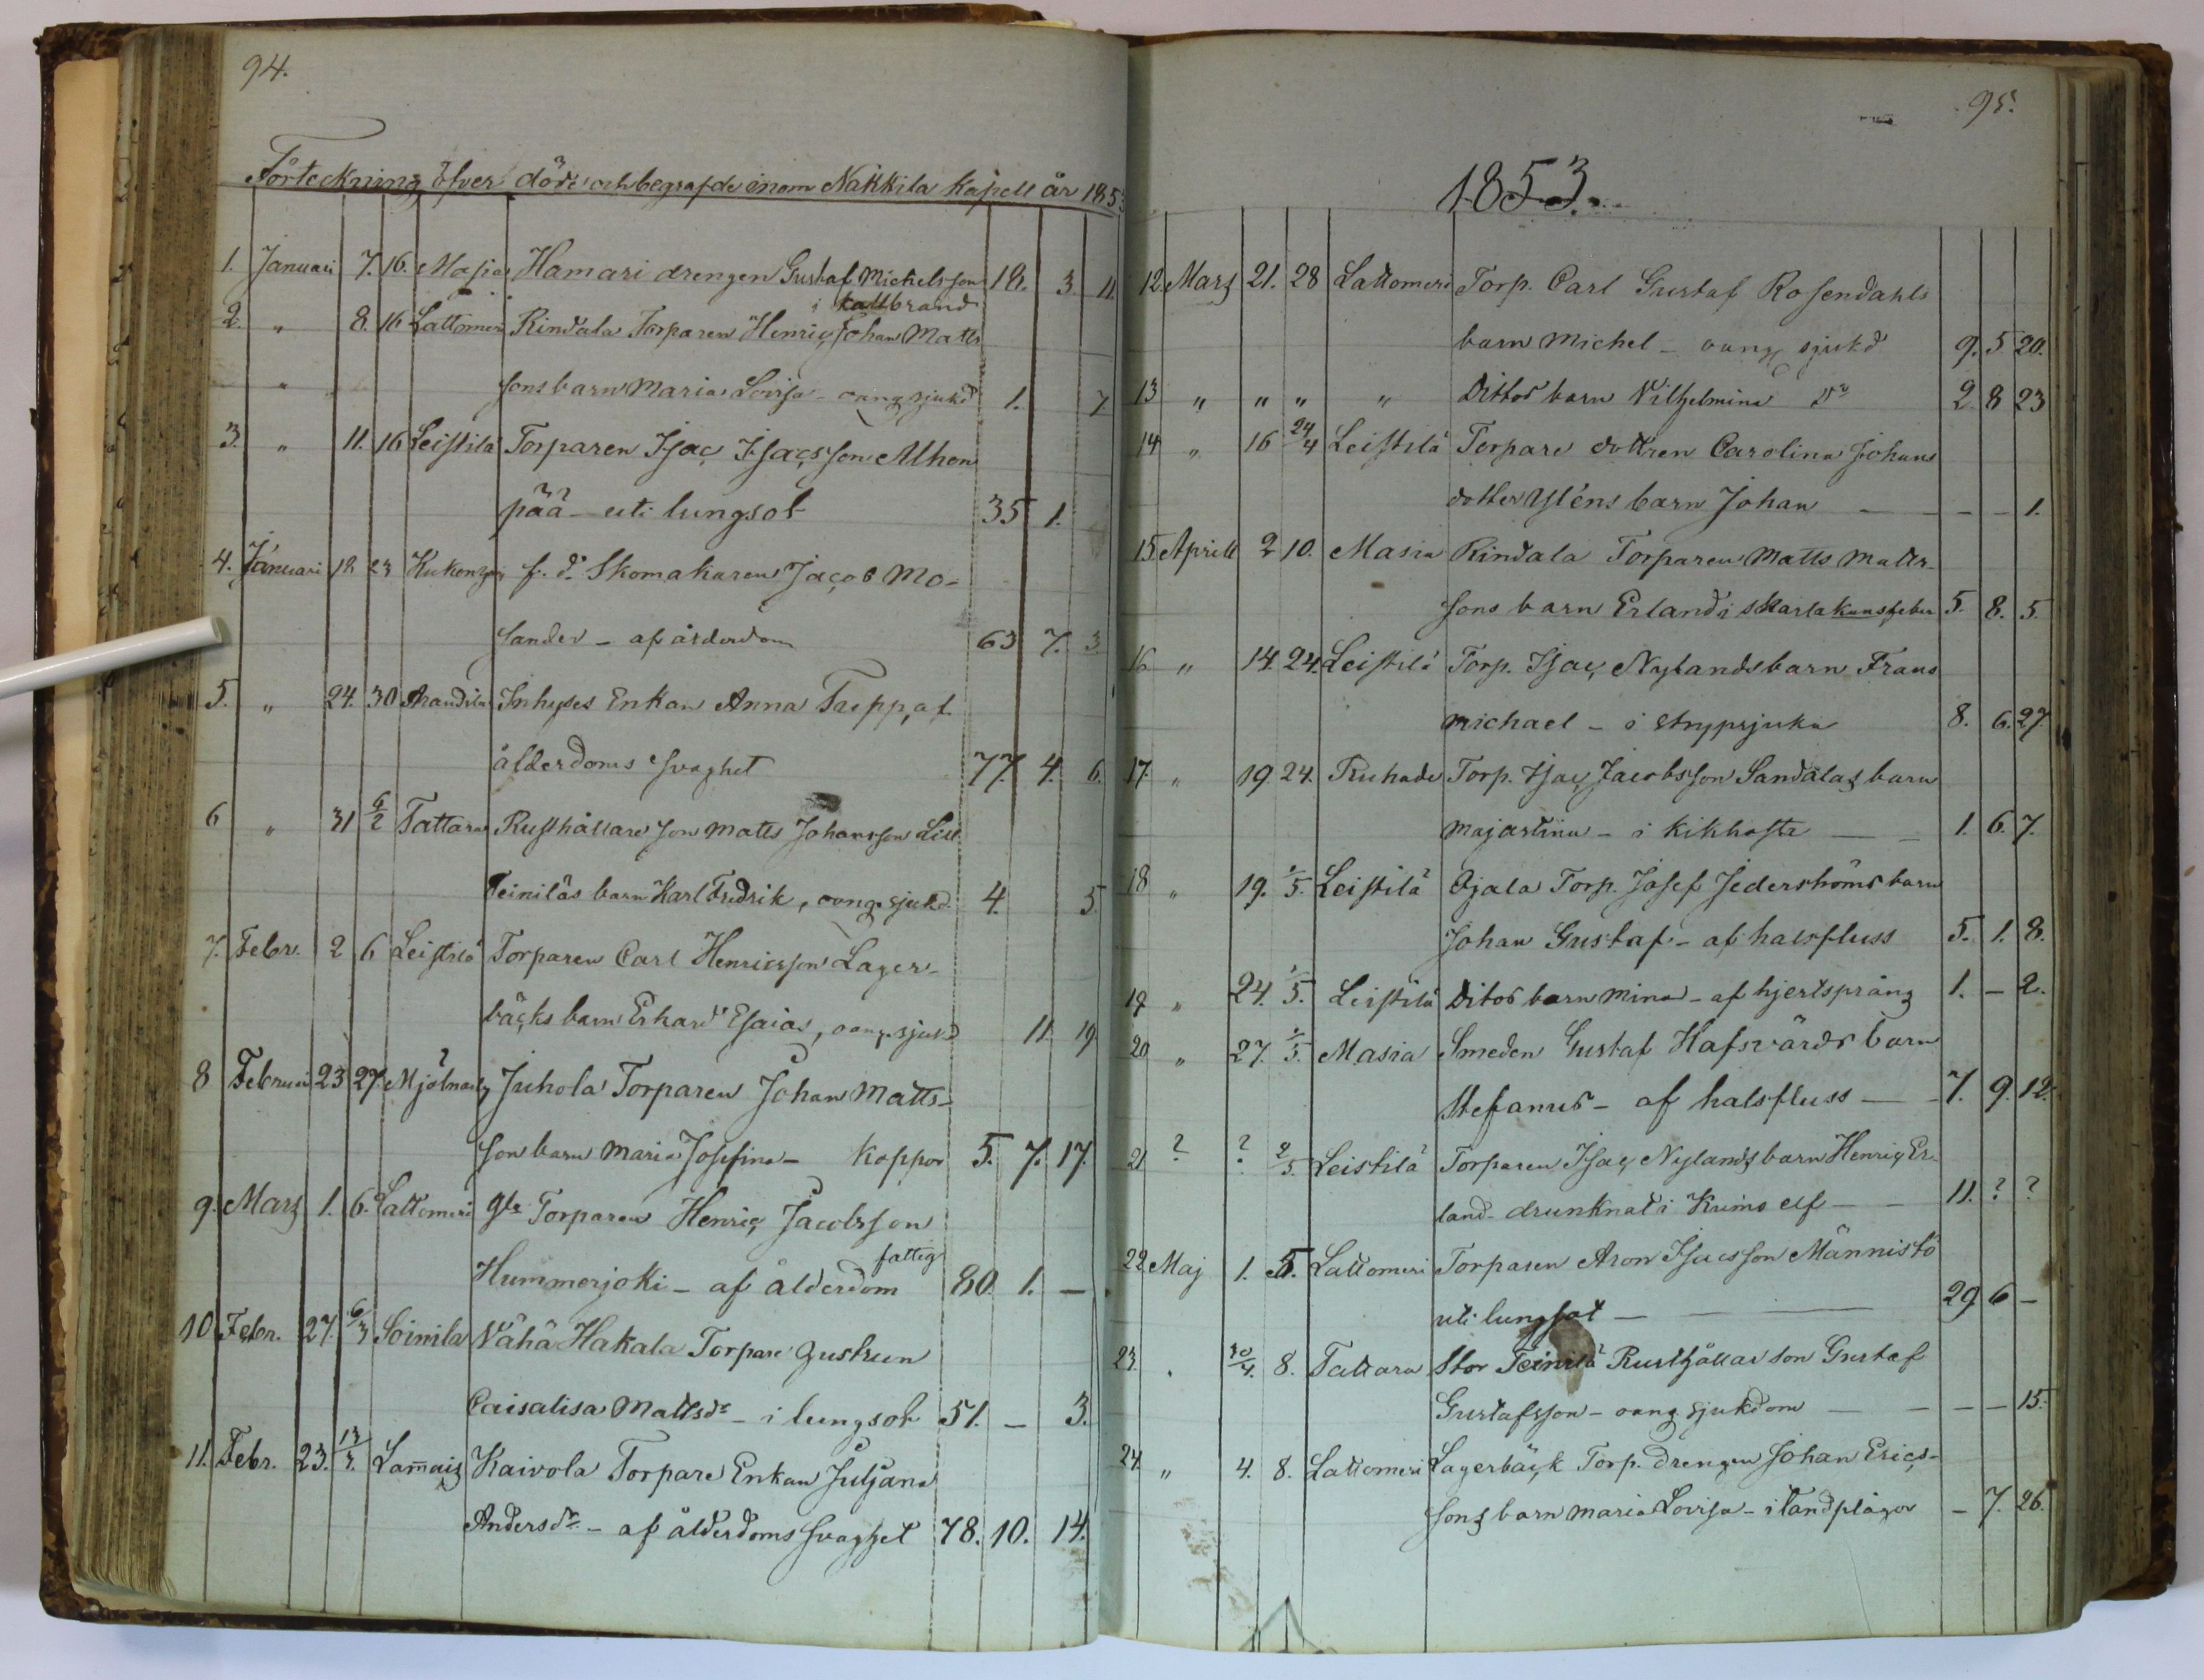 94.
Förteckning öfver döde och begrafde inom Nakkila Kapell år 1853
1. Januari 7. 16. Masia Hamari drengen Gustaf Michelsson 18. 3. 11.
i kallbrand
2. " 8. 16 Lattomeri Rindala Torparen Henric Johan Matts
" sons barn Maria Lovisa - oang sjukd 1. 7.
3. " 11. 16 Leistilä Torparen Isac Isacsson Alhon
pää - uti lungsot 35 1.
4. Januari 18 23 f. d. Skomakaren Jacob Mo-
sander - af ålderdom 63 7. 3
5. " 24. 30 Anandila Inhyses Enkan Anna Trepp, af
ålderdoms svaghet 77. 4. 6.
6 " 31 6/2 Tattara Rusthållare son Matts Johansson Lill
Teiniläs barn Karl Fredrik, oang. sjukd. 4. 5.
7. Febr. 2 6 Leistilä Torparen Carl Henricsson Lager-
bäcks barn Erhard Esaias, oang. sjukd 11. 19
8 Februari 23 27. Juhola Torparen Johan Matts-
son barn Maria Josefina - Koppor 5. 7. 17.
9. Mars 1. 6. Lattomeri gle Torparen Henric Jacobsson
fattig
Hummerjoki - af ålderdom 80 1. -
10 Febr. 27. 6/3 Soinila Vähä Hakala Torpare gustrun
Caisalisa Mattsdr - i lungsot 51. - 3.
11. Febr. 23. 13/3. Lam̄aiz Kaivola Torpare Enkan Juljana
Andersdr - af ålderdoms svaghet 78. 10. 14.
95.
1853.
12. Mars 21. 28 Lattomeri Torp. Carl Gustaf Rosendahls
barn Michel - oang sjukd 9. 5 20.
13 " " " " Dittos barn Vilhelmina Do 2 8 23
14 " 16 24/4 Leistilä Torpare dottren Carolina Johans
dotter Yléns barn Johan - - - 1.
15. Aprill 2 10. Masia Rindala Torparen Matts Matts-
sons barn Erland i skarlakansfeber 5. 8. 5.
16 " 14. 24. Leistilä Torp. Isac Nylands barn Frans
Michael - i strypsjuka 8. 6. 27
17. " 19. 24. Ruhade Torp. Isac Jacobsson Sandalas barn
Majastina - i kikhosta - - 1. 6. 7.
18 " 19. 1/5. Leistilä Ojala Torp. Josef Jederströms barn
Johan Gustaf - af halsfluss 5. 1. 8.
19 " 24. 1/5. Leistilä Ditos barn Mina - af hjertsprång 1. - 2.
20 " 27. 1/5. Masia Smeden Gustaf Hafsvärds barn
Stefanus - af halsfluss - 7. 9. 12.
21 ? ? 2/5. Leistilä Torparen Isac Nylands barn Henric Er-
land - drunknat i Kumo elf - - 11. ? ?
22 Maj 1. 5. Lattomeri Torparen Aron Isacsson Männistö
uti lungsot - - 29 6 -
23. . 30/4. 8. Tattara Stor Teinilä Rusthållar son Gustaf
Gustafsson - oang sjukdom - - - 15.
24 " 4. 8. Lattomeri Lagerbäck Torp. drengen Johan Erics-
sons barn Maria Lovisa - i tandplågor - 7. 26.